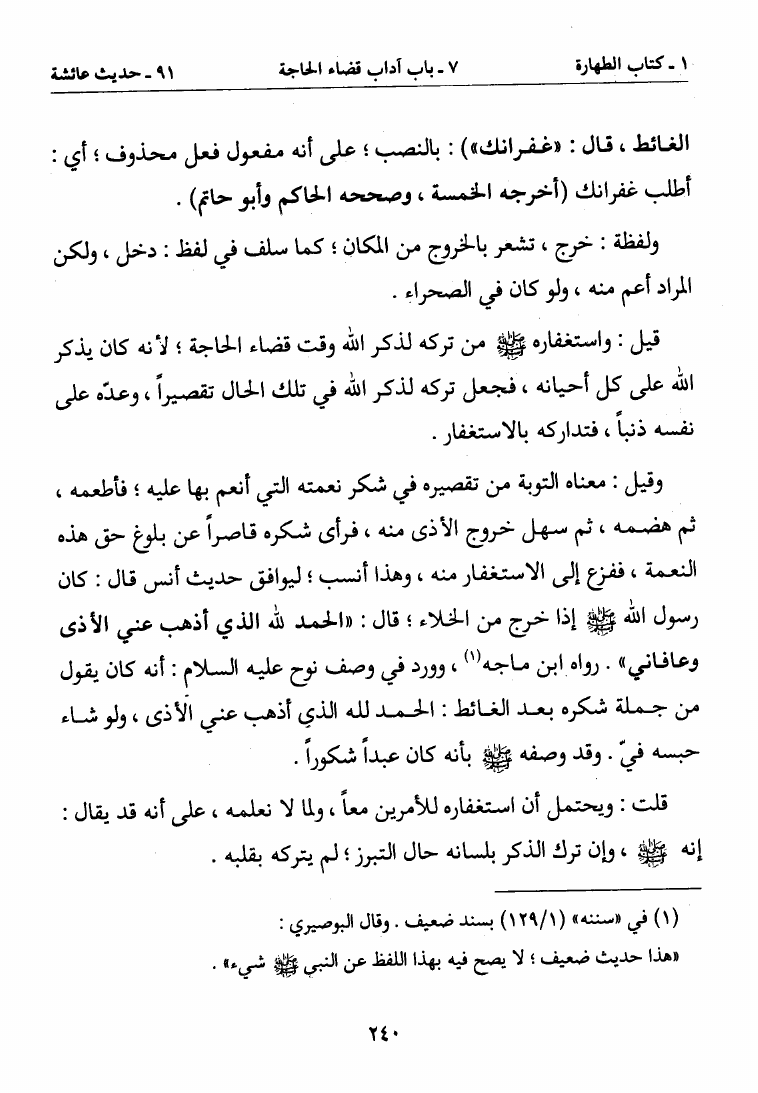 ١ ـ كتاب الطهارة ٧ ـ باب آداب قضاء الحاجة ٩١ ـ حديث عائشة
الغائط ، قال : «غفرانك») : بالنصب ؛ على أنه مفعول فعل محذوف ؛ أي :
أطلب غفرانك (أخرجه الخمسة ، وصححه الحاكم وأبو حاتم) .
ولفظة : خرج ، تشعر بالخروج من المكان ؛ كما سلف في لفظ : دخل ، ولكن
المراد أعم منه ، ولو كان في الصحراء .
قيل : واستغفاره ﷺ من تركه لذكر الله وقت قضاء الحاجة ؛ لأنه كان يذكر
الله على كل أحيانه ، فجعل تركه لذكر الله في تلك الحال تقصيراً ، وعدّه على
نفسه ذنباً ، فتداركه بالاستغفار .
وقيل : معناه التوبة من تقصيره في شكر نعمته التي أنعم بها عليه ؛ فأطعمه ،
ثم هضمه ، ثم سهل خروج الأذى منه ، فرأى شكره قاصراً عن بلوغ حق هذه
النعمة ، ففزع إلى الاستغفار منه ، وهذا أنسب ؛ ليوافق حديث أنس قال : كان
رسول الله ﷺ إذا خرج من الخلاء ؛ قال : «الحمد لله الذي أذهب عني الأذى
وعافاني» . رواه ابن ماجه(١) ، وورد في وصف نوح عليه السلام : أنه كان يقول
من جملة شكره بعد الغائط : الحمد لله الذي أذهب عني الأذى ، ولو شاء
حبسه فيّ . وقد وصفه ﷺ بأنه كان عبداً شكوراً .
قلت : ويحتمل أن استغفاره للأمرين معاً ، ولما لا نعلمه ، على أنه قد يقال :
إنه ﷺ ، وإن ترك الذكر بلسانه حال التبرز ؛ لم يتركه بقلبه .
(١) في «سننه» (١/١٢٩) بسند ضعيف . وقال البوصيري :
«هذا حديث ضعيف ؛ لا يصح فيه بهذا اللفظ عن النبي ﷺ شيء» .
٢٤٠